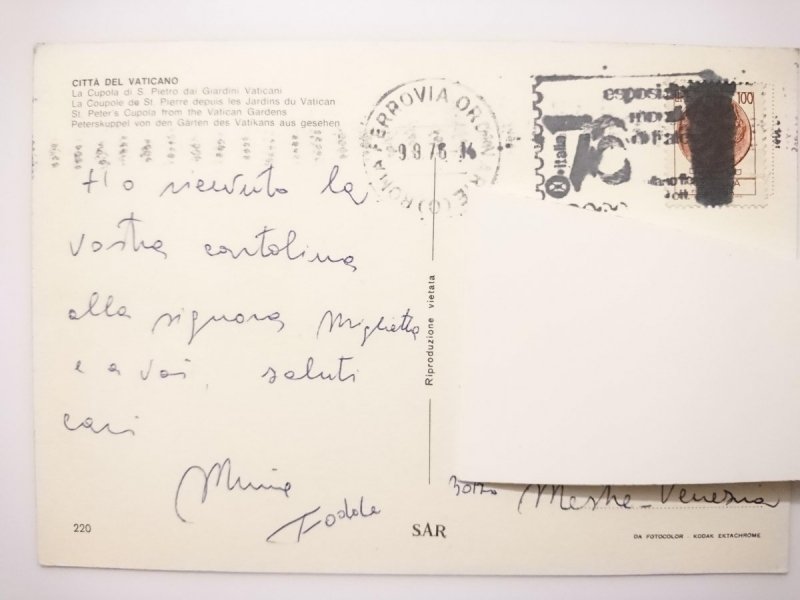 CITTÀ DEL VATICANO
La Cupola di S. Pietro dai Giardini Vaticani
La Coupole de St. Pierre depuis les Jardins du Vatican
St. Peter's Cupola from the Vatican Gardens
Peterskuppel von den Gärten des Vatikans aus gesehen
Ho ricevuto la
vostra cartolina
alla signora Miglietta
e a voi, saluti
cari
220
Riproduzione vietata
SAR
ROMA FERROVIA
9 9 76 14
italia
76
100
Mestre - Venezia
DA FOTOCOLOR - KODAK EKTACHROME